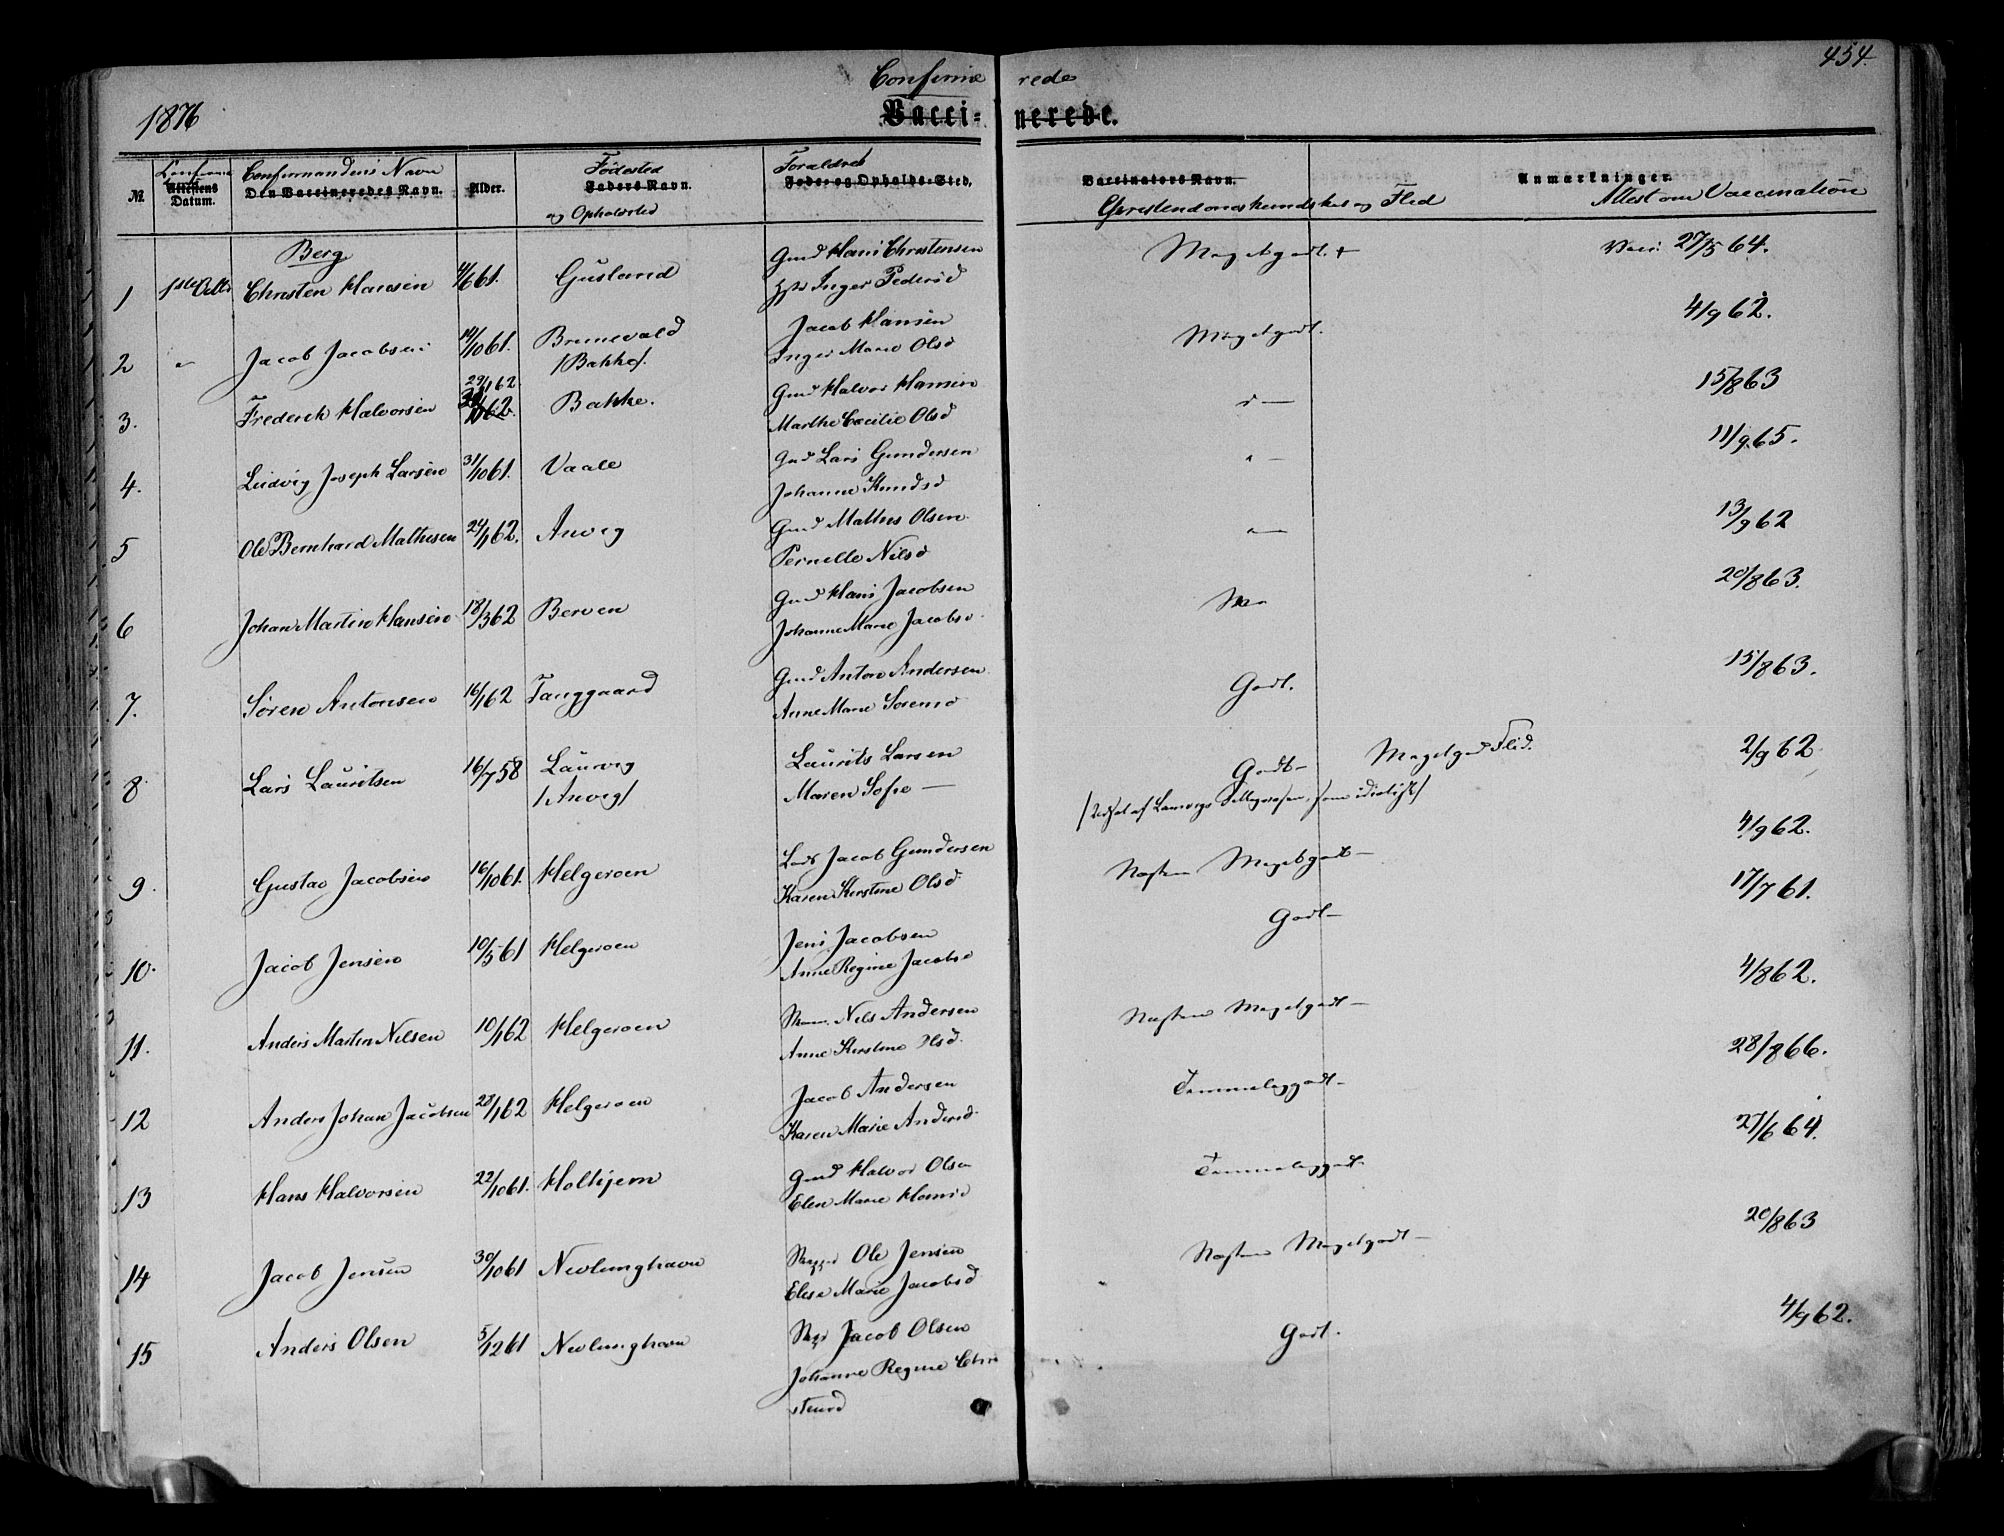 454.
Confirme rede
1876
Vacci= nerede.
Confirma
Confirmandens Navn
Fødested
Forældres
№ Attestens Datum. Den Vaccineredes Navn. Alder. Faders Navn. Føde- og Opholds-Sted. Vaccinators Navn. Anmærkninger.
og Opholdsted
Christendomskundskab og Flid
Attest om Vaccination
Berg
Gmd Hans Christensen
Meget godt. +
Vacc. 27/5 64.
1 1ste Octbr Christen Hansen 4/6 61. Gusland
Inger Pedersd
4/9 62.
Jacob Hansen
2 " Jacob Jacobsen 14/10 61. Brunevald
Meget godt.
/Bakke/.
Inger Marie Olsd
29/1 62.
Gmd Halvor Hansen
15/8 63
3. Frederik Halvorsen Bakke.
Marthe Cecilie Olsd
11/9 65.
Gmd Lars Gundersen
4. Ludvig Joseph Larsen 31/10 61. Vaale
Johanne Knudsd
13/9 62
Gmd Mathis Olsen
5 Ole Bernhard Mathisen 24/1 62. Anvig
Pernelle Nilsd
20/8 63.
Gmd Hans Jacobsen
6 Johan Martin Hansen 18/3 62 Berven
Johanne Marie Jacobsd
15/8 63.
Gmd Anton Andersen
7. Søren Antonsen 16/1 62 Fanggaard
Godt.
Anne Marie Sørensd
2/9 62
Laurits Larsen
Meget god Flid.
8. Lars Lauritsen 16/7 58 Laurvig
Godt –
/Anvig/
Maren Sofie —
4/9 62.
Jacob Gundersen
9. Gustav Jacobsen 16/10 61. Helgeroen
Næsten Meget godt –
Karen Kirstine Olsd
17/7 61.
Godt –
Jens Jacobsen
10. Jacob Jensen 10/5 61 Helgeroen
Anne Regine Jacobsd
4/8 62.
Nils Andersen
Næsten Meget godt –
11. Anders Martin Nilsen 10/1 62 Helgeroen
Anne Kirstine Olsd.
28/8 66.
Jacob Andersen
Temmelig godt –
12 Anders Johan Jacobsen 28/1 62 Helgeroen
Karen Marie Andersd.
27/6 64.
Gmd Halvor Olsen
Temmelig godt –
13 Hans Halvorsen 22/10 61. Holtkjern
Elen Marie Hansd
20/8 63
Ole Jensen
Næsten Meget godt –
14 Jacob Jensen 30/10 61 Nevlunghavn
Elise Marie Jacobsd
4/9 62.
Jacob Olsen
Godt.
15 Anders Olsen 5/12 61 Nevlunghavn
Johanne Regine Chri
stensd